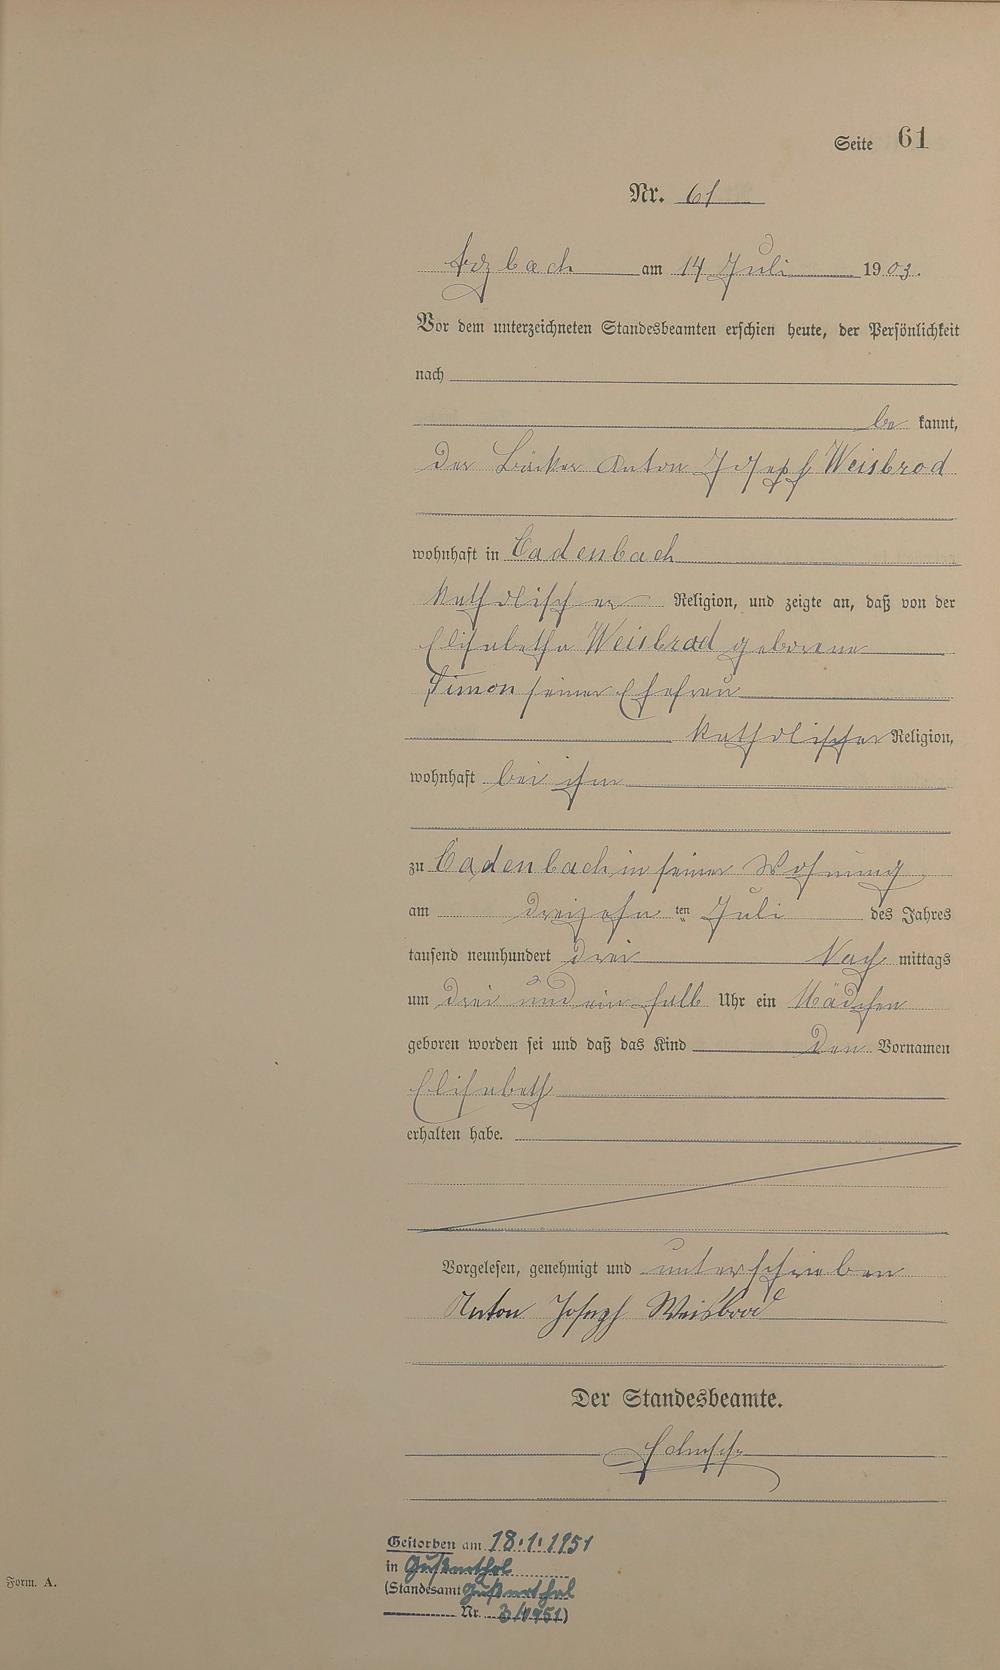 Seite 61
Nr. 61
Arzbach am 14 Juli 1903.
Vor dem unterzeichneten Standesbeamten erschien heute, der Persönlichkeit
nach
be kannt,
der Bäcker Anton Josepf Weisbrod
wohnhaft in Cadenbach
katholischer Religion, und zeigte an, daß von der
Elisabetha Weisbrod geborene
Simon seiner Ehefrau
katholischer Religion,
wohnhaft bei ihm
zu Cadenbach in seiner Wohnung
am dreizehn ten Juli des Jahres
tausend neunhundert drei Nach mittags
um drei und ein halb Uhr ein Mädchen
geboren worden sei und daß das Kind den Vornamen
Elisabeth
erhalten habe.
Vorgelesen, genehmigt und unterschrieben
Anton Joseph Weisbrod
Der Standesbeamte.
Gestorben am 18.1.1951
in
(Standesamt
Nr. 3/1951)
Form. A.